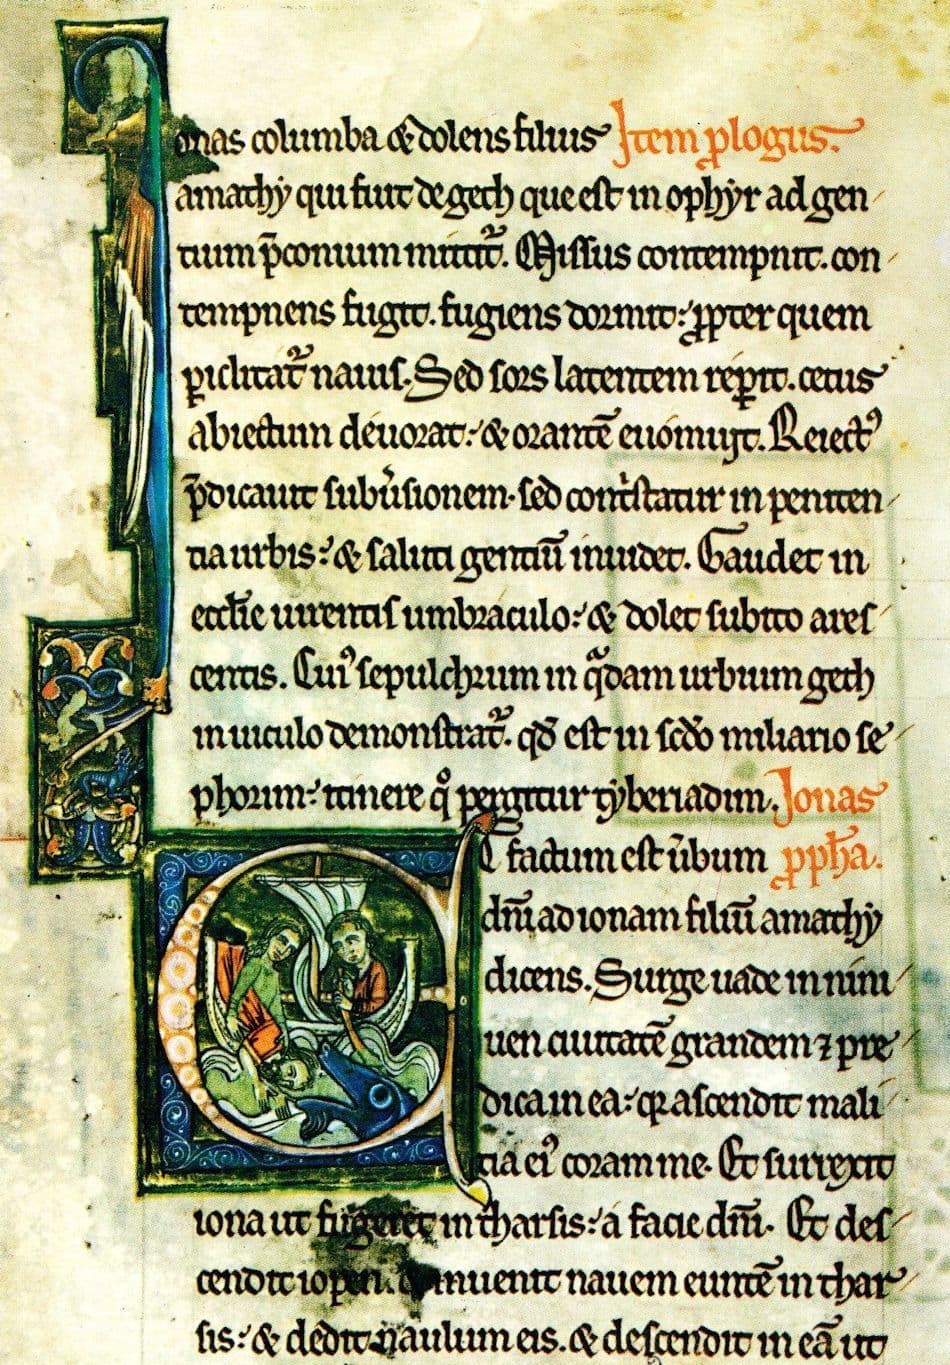 Ionas columba & dolens filius Item plogus.
amathy qui fuit de geth que est in ophyr ad gen
tium p̄conium mittit᷑. Missus contempnit. con
tempnens fugit. fugiens dormit: ꝓpter quem
ꝑiclitat᷑ nauis. Sed sors latentem reꝑit. cetus
abiectum deuorat: & orantē euomuit. Reiectꝰ
p̄dicauit subu̓sionem. sed contͥstatur in peniten
tia urbis: & saluti gentiū inuidet. Gaudet in
uirentis umbraculo: & dolet subito ares
centis. Cuiꝰ sepulchrum in qͣdam urbium geth
in uiculo demonstrat᷑. qđ est in scđo miliario se
phorim: itinere qͦ pergitur tyberiadim. Jonas
Et factum est u̓bum ꝓph̄a.
dn̄i ad ionam filiū amathy
dicens. Surge uade in nini
uen ciuitatē grandem ⁊ pre
dica in ea: qꝛ ascendit mali
tia eiꝰ coram me. Et surrexit
iona ut fugeret in tharsis: a facie dn̄i. Et des
cendit iopen. & inuenit nauem euntē in thar
sis: & dedit naulum eis. & descendit in eā ut